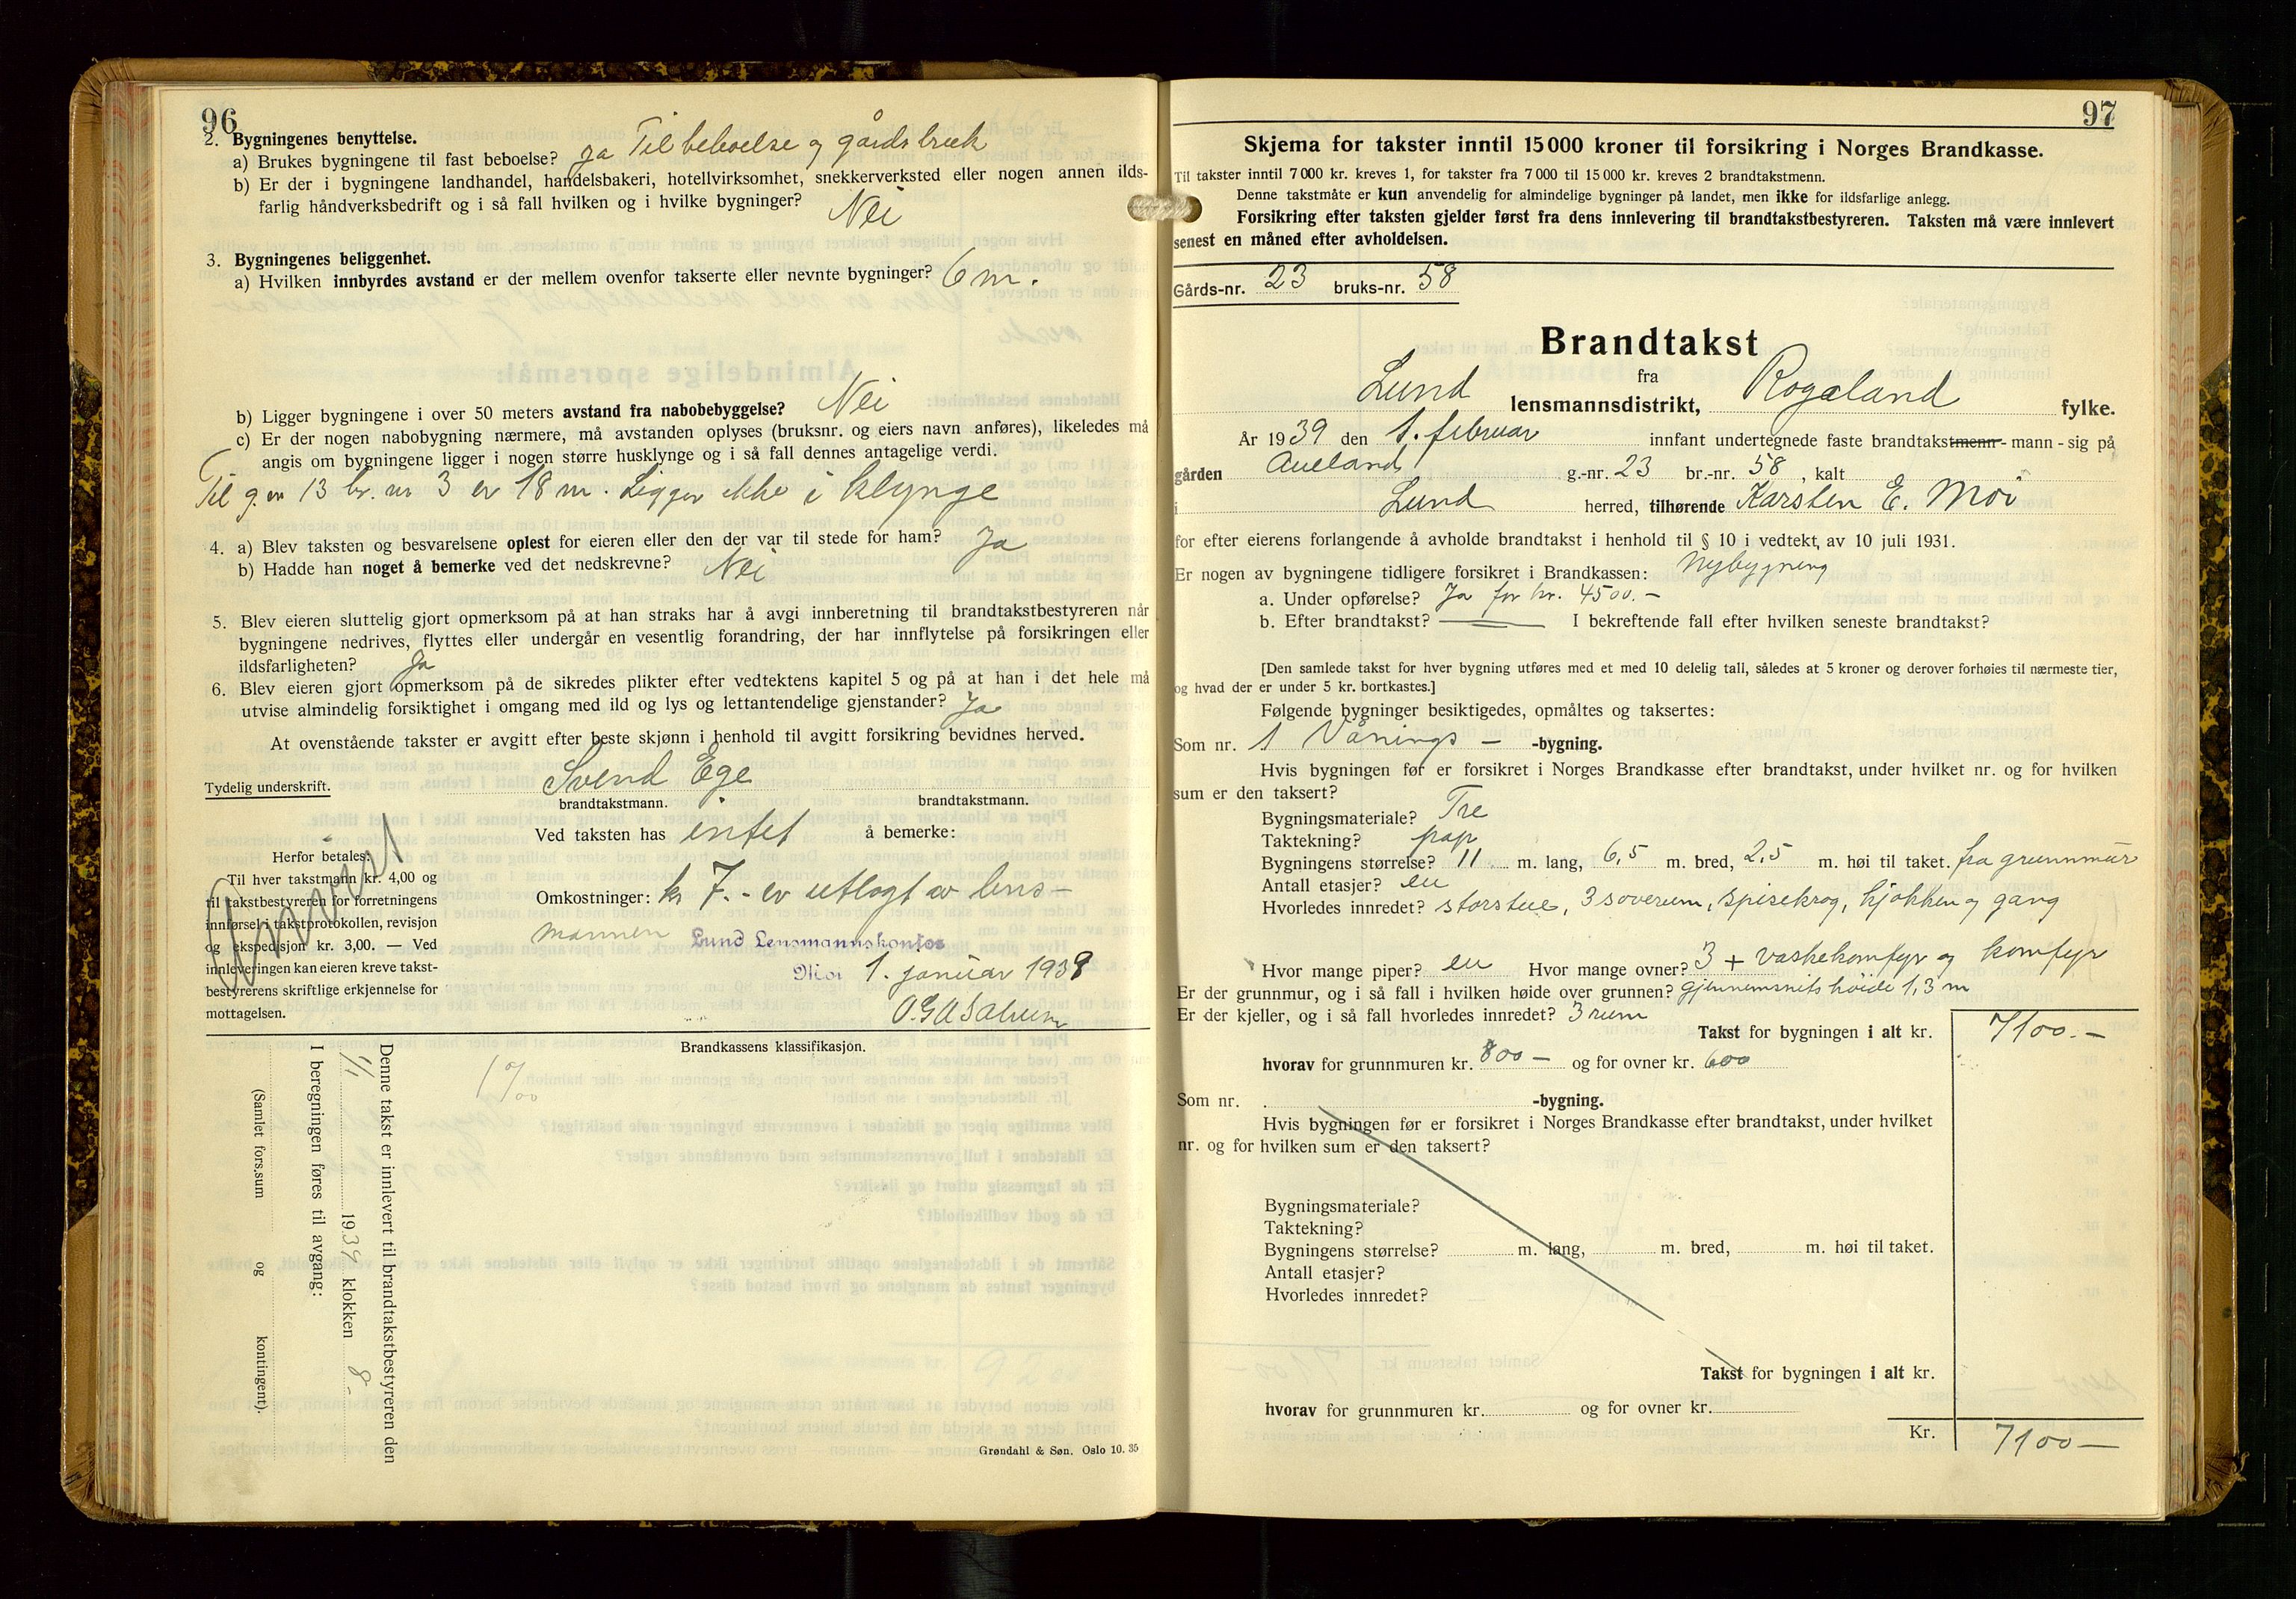 96
2. Bygningenes benyttelse.
a) Brukes bygningene til fast beboelse? Ja Til beboelse og gårdsbruk
b) Er der i bygningene landhandel, handelsbakeri, hotellvirksomhet, snekkerverksted eller nogen annen ilds-
farlig håndverksbedrift og i så fall hvilken og i hvilke bygninger? Nei
3. Bygningenes beliggenhet.
a) Hvilken innbyrdes avstand er der mellem ovenfor takserte eller nevnte bygninger? 6 m.
b) Ligger bygningene i over 50 meters avstand fra nabobebyggelse? Nei
c) Er der nogen nabobygning nærmere, må avstanden oplyses (bruksnr. og eiers navn anføres), likeledes må
angis om bygningene ligger i nogen større husklynge og i så fall dennes antagelige verdi.
Til g.nr 13 br. nr 3 er 18 m. Ligger ikke i klynge
4. a) Blev taksten og besvarelsene oplest for eieren eller den der var til stede for ham? Ja
b) Hadde han noget å bemerke ved det nedskrevne? Nei
5. Blev eieren sluttelig gjort opmerksom på at han straks har å avgi innberetning til brandtakstbestyreren når
bygningene nedrives, flyttes eller undergår en vesentlig forandring, der har innflytelse på forsikringen eller
ildsfarligheten? Ja
6. Blev eieren gjort opmerksom på de sikredes plikter efter vedtektens kapitel 5 og på at han i det hele må
utvise almindelig forsiktighet i omgang med ild og lys og lettantendelige gjenstander? Ja
At ovenstående takster er avgitt efter beste skjønn i henhold til avgitt forsikring bevidnes herved.
Tydelig underskrift. Svend Ege
brandtakstmann. brandtakstmann.
Ved taksten has intet å bemerke:
Herfor betales:
Til hver takstmann kr. 4,00 og
til takstbestyreren for forretningens
innførsel i takstprotokollen, revisjon
og ekspedisjon kr. 3,00. — Ved
innleveringen kan eieren kreve takst-
bestyrerens skriftlige erkjennelse for
mottagelsen.
Omkostninger: kr 7.- er utlagt av lens-
mannen Lund Lensmannskontor
Moi 1. januar 1939
Brandkassens klassifikasjon.
1 0/00
Denne takst er innlevert til brandtakstbestyreren den
1/1 1939 klokken 8-
I beregningen føres til avgang:
(Samlet fors.sum og kontingent).
Grøndahl & Søn. Oslo 10. 35
97
Skjema for takster inntil 15 000 kroner til forsikring i Norges Brandkasse.
Til takster inntil 7 000 kr. kreves 1, for takster fra 7 000 til 15 000 kr. kreves 2 brandtakstmenn.
Denne takstmåte er kun anvendelig for almindelige bygninger på landet, men ikke for ildsfarlige anlegg.
Forsikring efter taksten gjelder først fra dens innlevering til brandtakstbestyreren. Taksten må være innlevert
senest en måned efter avholdelsen.
Gårds-nr. 23 bruks-nr. 58
Brandtakst
fra
Lund lensmannsdistrikt, Rogaland fylke.
År 1939 den 1. februar innfant undertegnede faste brandtakstmenn - mann - sig på
gården Aueland g.-nr. 23 br.-nr. 58, kalt
i Lund herred, tilhørende Karsten E. Moi
for efter eierens forlangende å avholde brandtakst i henhold til § 10 i vedtekt av 10 juli 1931.
Er nogen av bygningene tidligere forsikret i Brandkassen: Nybygning
a. Under opførelse? Ja for kr. 4500.-
b. Efter brandtakst? — I bekreftende fall efter hvilken seneste brandtakst?
[Den samlede takst for hver bygning utføres med et med 10 delelig tall, således at 5 kroner og derover forhøies til nærmeste tier,
og hvad der er under 5 kr. bortkastes.]
Følgende bygninger besiktigedes, opmåltes og taksertes:
Som nr. 1 Vånings- -bygning.
Hvis bygningen før er forsikret i Norges Brandkasse efter brandtakst, under hvilket nr. og for hvilken
sum er den taksert?
Bygningsmateriale? Tre
Taktekning? papp
Bygningens størrelse? 11 m. lang, 6,5 m. bred, 2,5 m. høi til taket. fra grunnmur
Antall etasjer? en
Hvorledes innredet? storstue, 3 soverum, spisekrog, kjøkken og gang
Hvor mange piper? en Hvor mange ovner? 3 + vaskekomfyr og komfyr
Er der grunnmur, og i så fall i hvilken høide over grunnen? gjennemsnits høide 1,3 m
Er der kjeller, og i så fall hvorledes innredet? 3 rum
Takst for bygningen i alt kr. 7100.-
hvorav for grunnmuren kr. 800- og for ovner kr. 600
Som nr. -bygning.
Hvis bygningen før er forsikret i Norges Brandkasse efter brandtakst, under hvilket
nr. og for hvilken sum er den taksert?
Bygningsmateriale?
Taktekning?
Bygningens størrelse? m. lang, m. bred, m. høi til taket.
Antall etasjer?
Hvorledes innredet?
Takst for bygningen i alt kr.
hvorav for grunnmuren kr. og for ovner kr.
Kr. 7100-